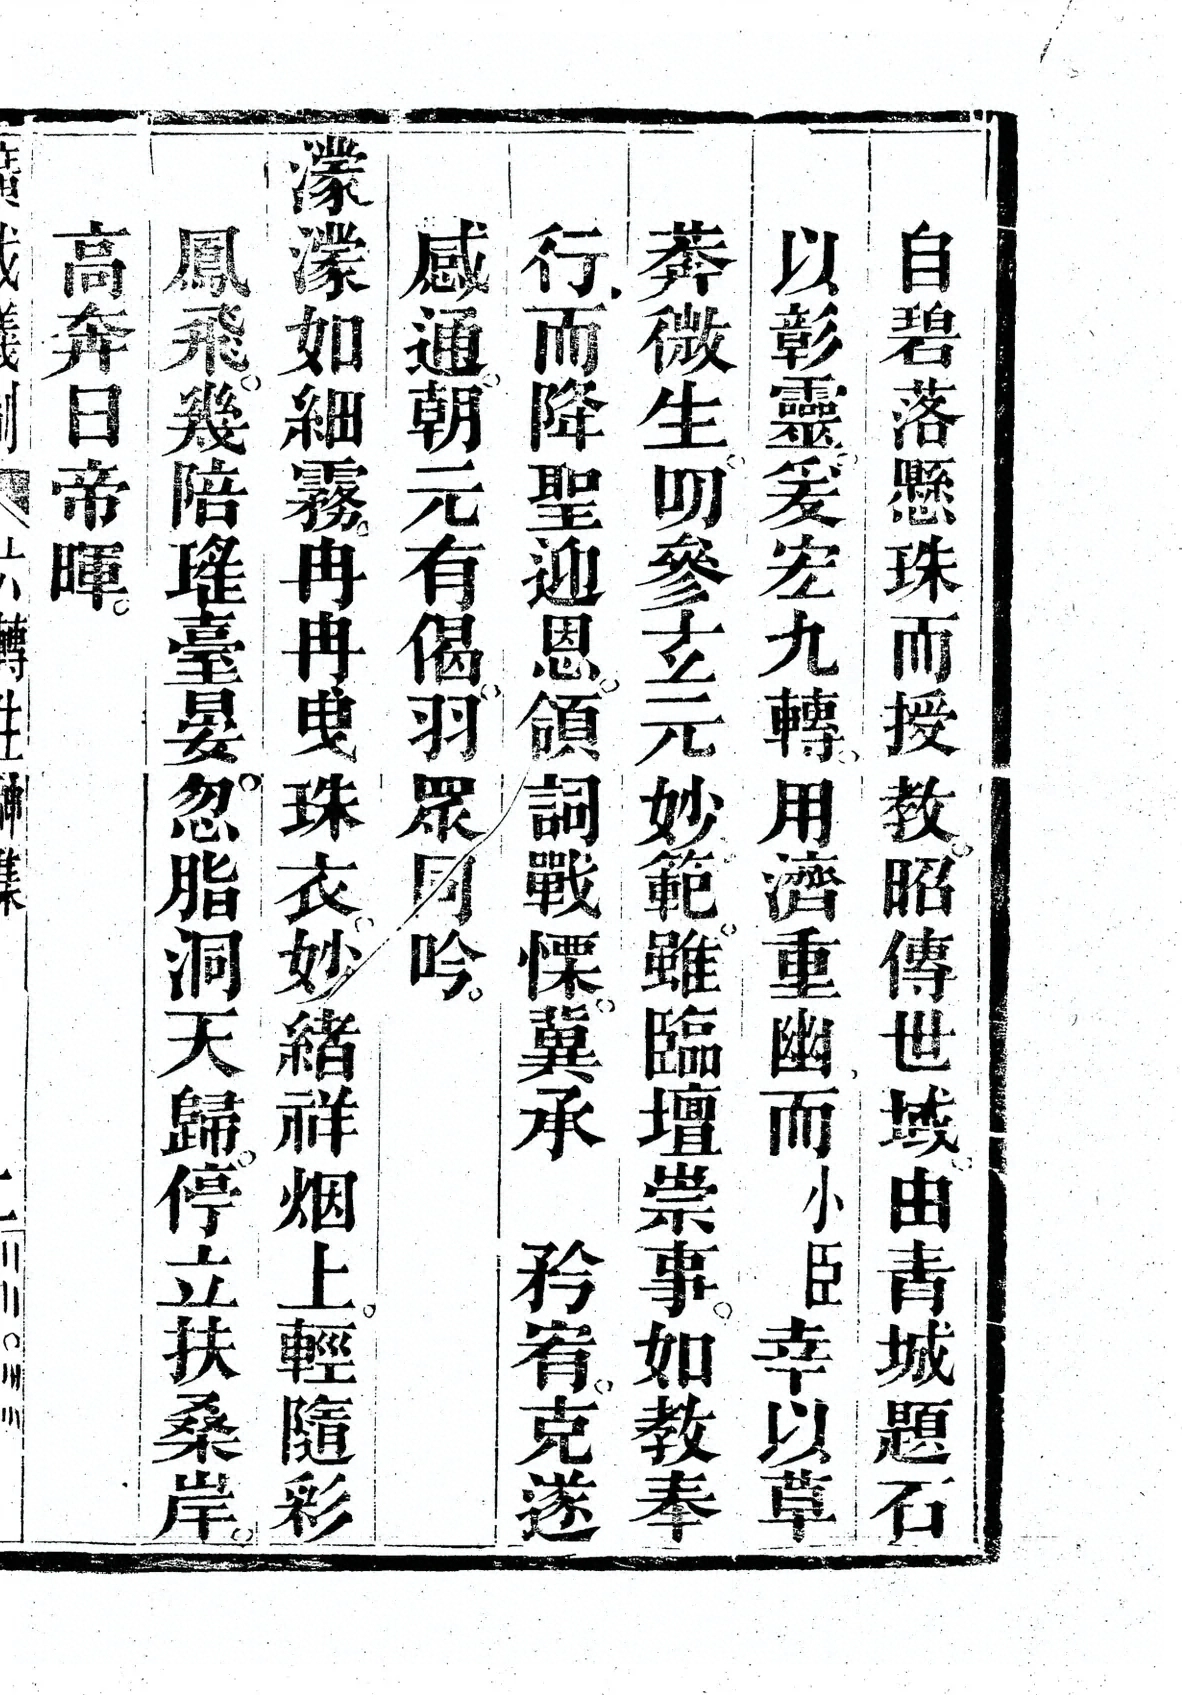 自碧落懸珠而授教昭傳世域由青城題石
以彰靈爰宏九轉用濟重幽而小臣幸以草
莽微生叨參玄元妙範雖臨壇崇事如教奉
行而降聖迎恩領詞戰慄冀承　矜宥克遂
感通朝元有偈羽眾同吟
濛濛如細霧冉冉曳珠衣妙緒祥烟上輕隨彩
鳳飛幾陪瑤臺晏忽脂洞天歸停立扶桑岸
高奔日帝暉
廣成儀制　六轉生神集